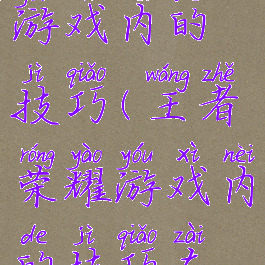 游戏内的
jì qiǎo wáng zhě
技巧(王者
róng yào yóu xì nèi
荣耀游戏内
de jì qiǎo zài
的技巧在